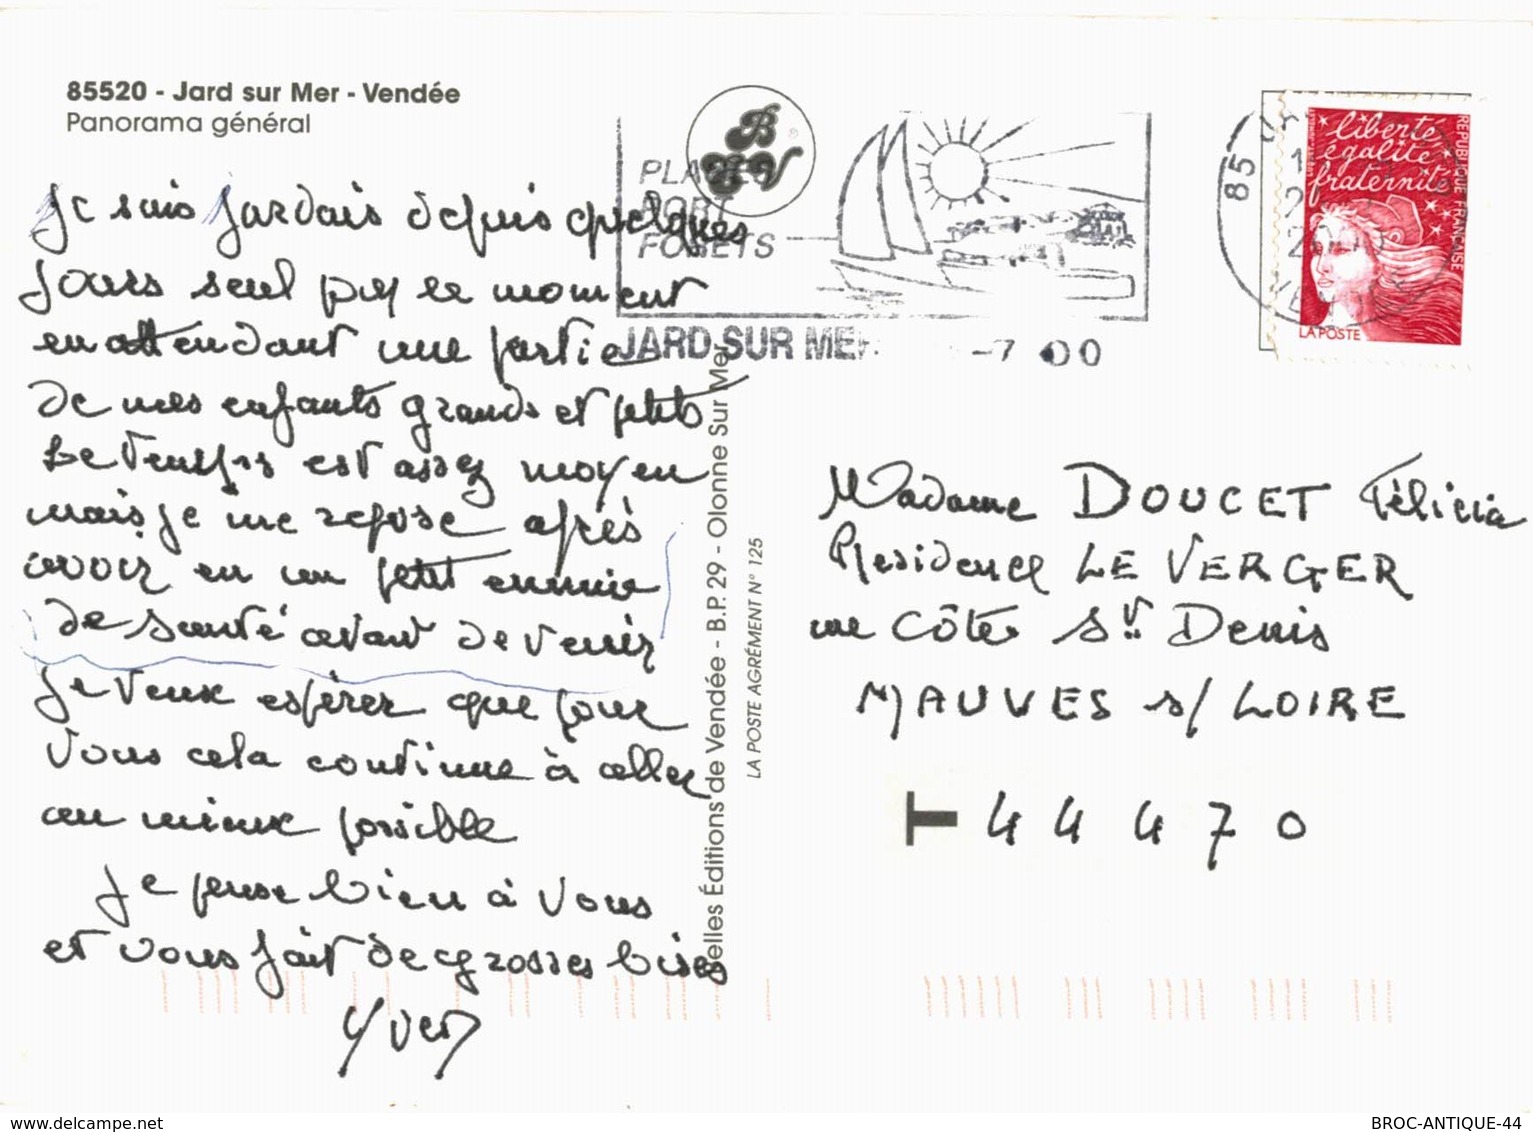 85520 - Jard sur Mer - Vendée
Panorama général
Je suis Jardais depuis quelques
jours seul pour le moment
en attendant une partie
de mes enfants grands et petits
Le temps est assez moyen
mais je me repose après
avoir eu un petit ennuie
de santé avant de venir
Je veux espérer que pour
vous cela continue à aller
au mieux possible
Je pense bien à vous
et vous fait de grosses bises
Yves
BV
PLAGES
PORT
FORETS
JARD SUR MER
-7 00
85
liberté
égalité
fraternité
REPUBLIQUE FRANÇAISE
LA POSTE
elles Éditions de Vendée - B.P. 29 - Olonne Sur Mer
LA POSTE AGRÉMENT N° 125
Madame DOUCET Félicia
Residence LE VERGER
rue Côte St Denis
MAUVES s/ LOIRE
T 44470
BROC-ANTIQUE-44